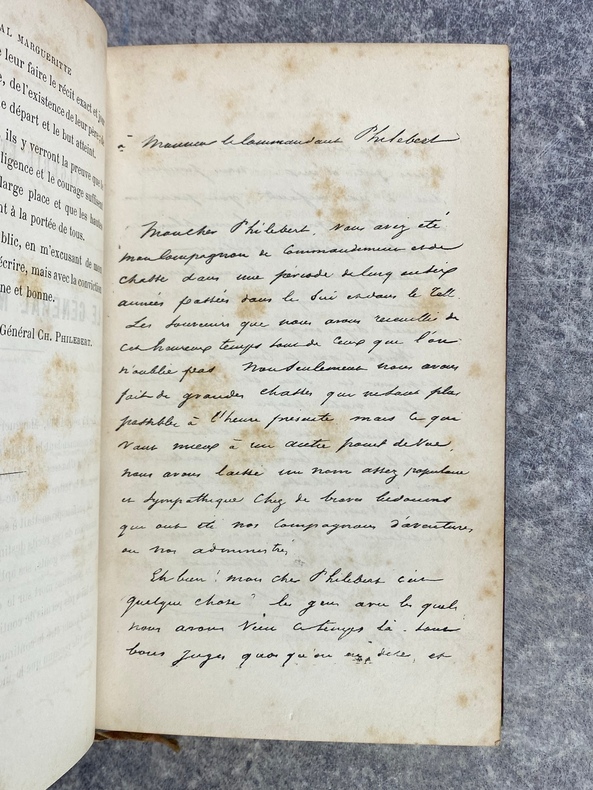 AL MARGUERITTE
leur faire le récit exact et
, de l'existence de leur père, de
e départ et le but atteint.
ils y verront la preuve que
ligence et le courage suffisent
large place et que les hautes
nt à la portée de tous.
blic, en m'excusant de mon
écrire, mais avec la conviction
ne et bonne.
Général CH. PHILEBERT.
à Monsieur le Commandant Philebert
Mon cher Philebert, vous avez été
mon Compagnon de Commandement et de
chasse dans une période de cinq ou six
années passées dans le Sud et dans le Tell.
Les Souvenirs que nous avons recueillis de
cet heureux temps sont de ceux que l'on
n'oublie pas. Non Seulement nous avons
fait de grandes chasses qui ne sont plus
possible à l'heure présente mais ce qui
vaut mieux à un autre point de Vue,
nous avons laissé un nom assez populaire
et Sympathique Chez de braves bédouins
qui ont été nos Compagnons d'aventures,
ou nos administrés,
Eh bien! mon cher Philebert c'est
quelque chose! les gens avec les quels
nous avons Vécu ce temps là. sont
bons Juges quoiqu'on en dise, et